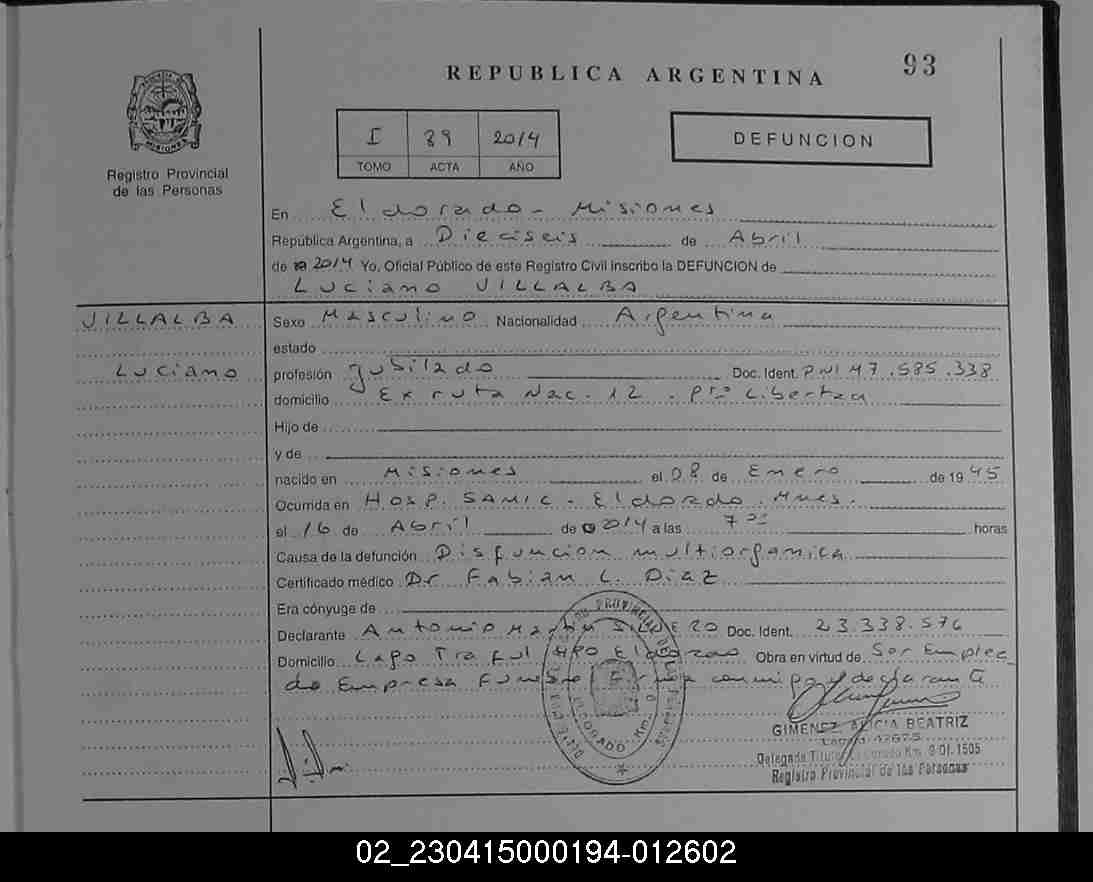 93
REPUBLICA ARGENTINA
PROVINCIA DE MISIONES
Registro Provincial
de las Personas
I 89 2014
TOMO ACTA AÑO
DEFUNCION
En Eldorado - Misiones
República Argentina, a Dieciseis de Abril
de 2014 Yo, Oficial Público de este Registro Civil inscribo la DEFUNCION de
Luciano VILLALBA
VILLALBA
Luciano
Sexo Masculino Nacionalidad Argentina
estado
profesión Jubilado Doc. Ident. DNI 47.585.338
domicilio Ex ruta Nac. 12. Pto Libertad
Hijo de
y de
nacido en Misiones el 08 de Enero de 1945
Ocurrida en Hosp. SAMIC - Eldorado. Mnes.
el 16 de Abril de 2014 a las 7 00 horas
Causa de la defunción Disfuncion multiorganica
Certificado médico Dr Fabian L. Diaz
Era cónyuge de
Declarante Antonio Doc. Ident. 23.338.576
Domicilio Lago Traful Eldorado Obra en virtud de Ser Emplea
do Empresa Funebre Firma conmigo y declarante
ELDORADO Km. 9
GIMENEZ ALICIA BEATRIZ
Delegada Titular Eldorado Km. 9 Of. 1505
Registro Provincial de las Personas
02_230415000194-012602